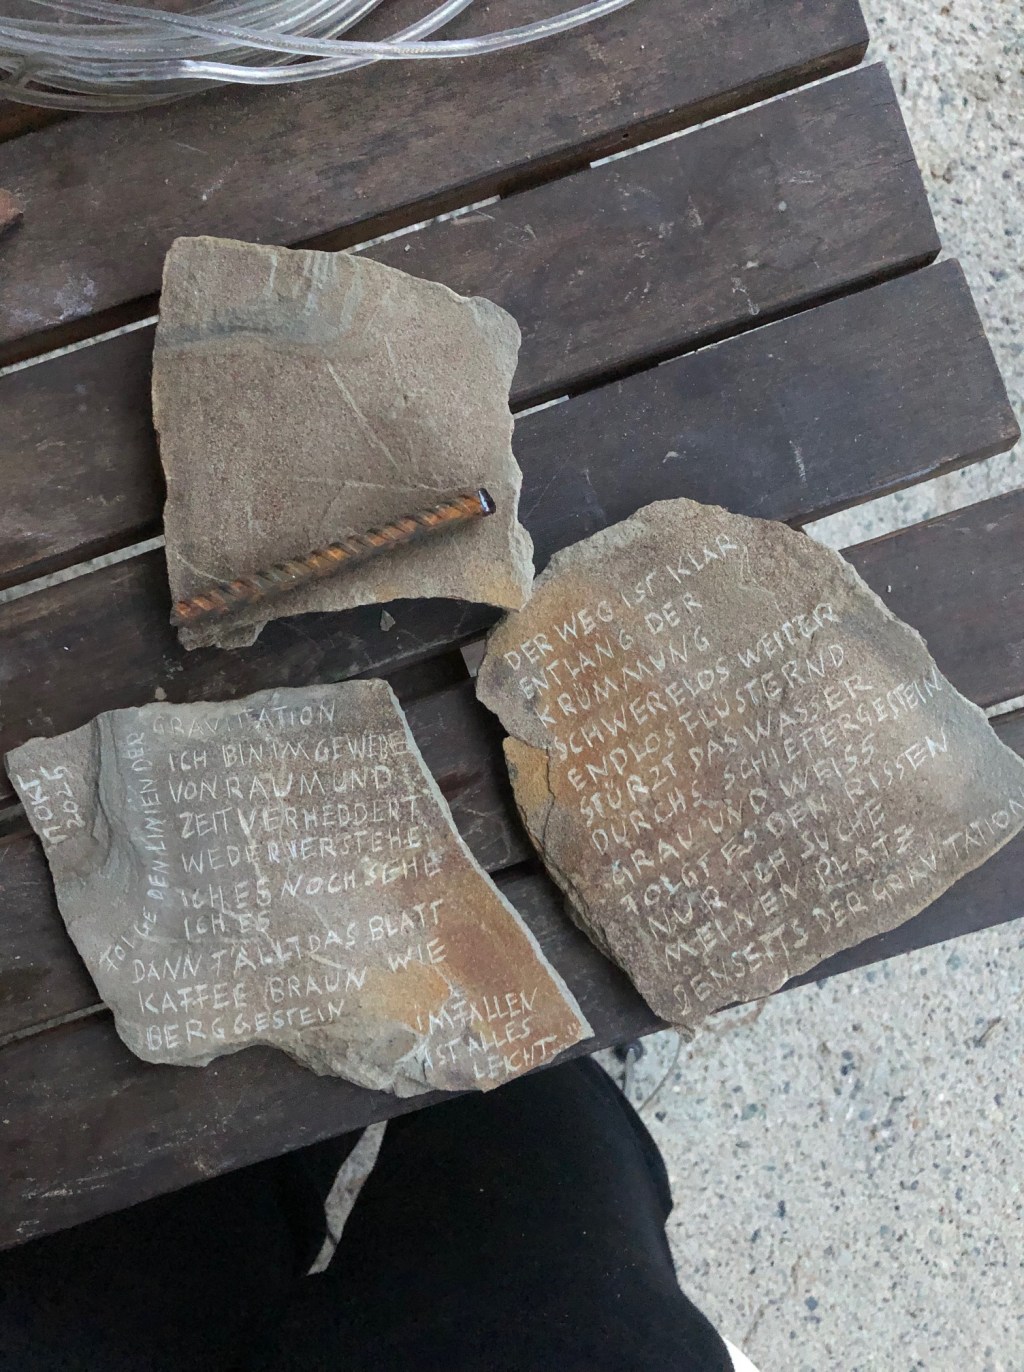 DER WEG IST KLAR
ENTLANG DER
KRÜMMUNG
SCHWERELOS WEITER
ENDLOS FLÜSTERND
STÜRZT DAS WASSER
DURCHS SCHIEFERGESTEIN
GRAU UND WEISS
FOLGT ES DEN RISSEN
NUR ICH SUCHE
MEINEN PLATZ
JENSEITS DER GRAVITATION
FOLGE DEN LINIEN DER
GRAVITATION
ICH BIN IM GEWEBE
VON RAUM UND
ZEIT VERHEDDERT
WEDER VERSTEHE
ICH ES NOCH SEHE
ICH ES
DANN FÄLLT DAS BLATT
KAFFEE BRAUN WIE
BERGGESTEIN
IM FALLEN
IST ALLES
LEICHT